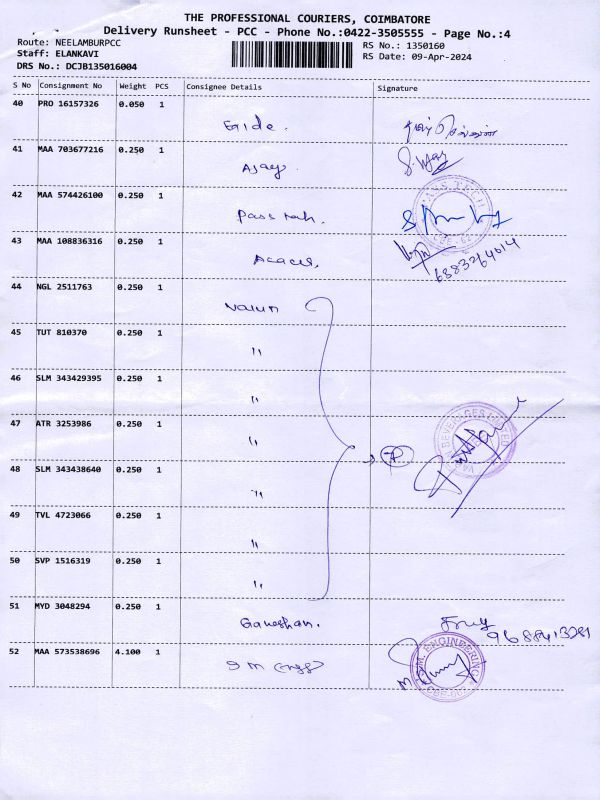 THE PROFESSIONAL COURIERS, COIMBATORE
Delivery Runsheet - PCC - Phone No.:0422-3505555 - Page No.:4
Route: NEELAMBURPCC
RS No.: 1350160
Staff: ELANKAVI
RS Date: 09-Apr-2024
DRS No.: DCJB135016004
S No Consignment No Weight PCS Consignee Details Signature
40 PRO 16157326 0.050 1
41 MAA 703677216 0.250 1 Ajay.
42 MAA 574426100 0.250 1 Pass tech.
PASS TECH
43 MAA 108836316 0.250 1
44 NGL 2511763 0.250 1 Varun
45 TUT 810370 0.250 1 "
46 SLM 343429395 0.250 1 "
47 ATR 3253986 0.250 1 "
BEVERAGES LIMITED
48 SLM 343438640 0.250 1 "
7
49 TVL 4723066 0.250 1 "
50 SVP 1516319 0.250 1 "
51 MYD 3048294 0.250 1 Ganeshan.
52 MAA 573538696 4.100 1 S M
S.M. ENGINEERING